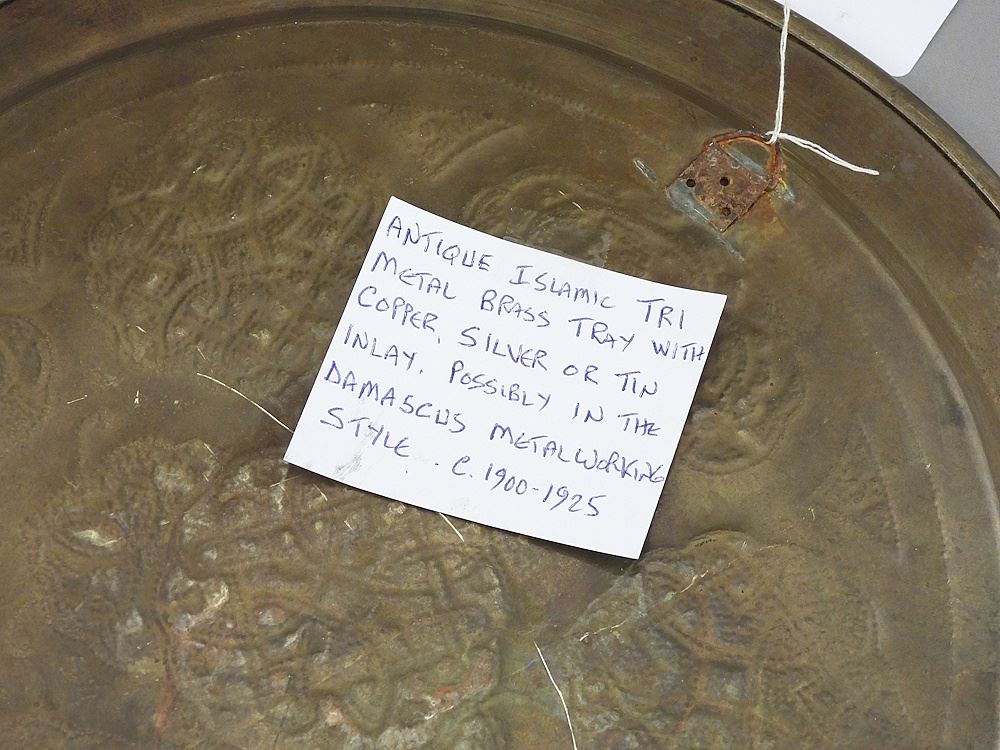 ANTIQUE ISLAMIC TRI
METAL BRASS TRAY WITH
COPPER, SILVER OR TIN
INLAY. POSSIBLY IN THE
DAMASCUS METALWORKING
STYLE. C. 1900-1925